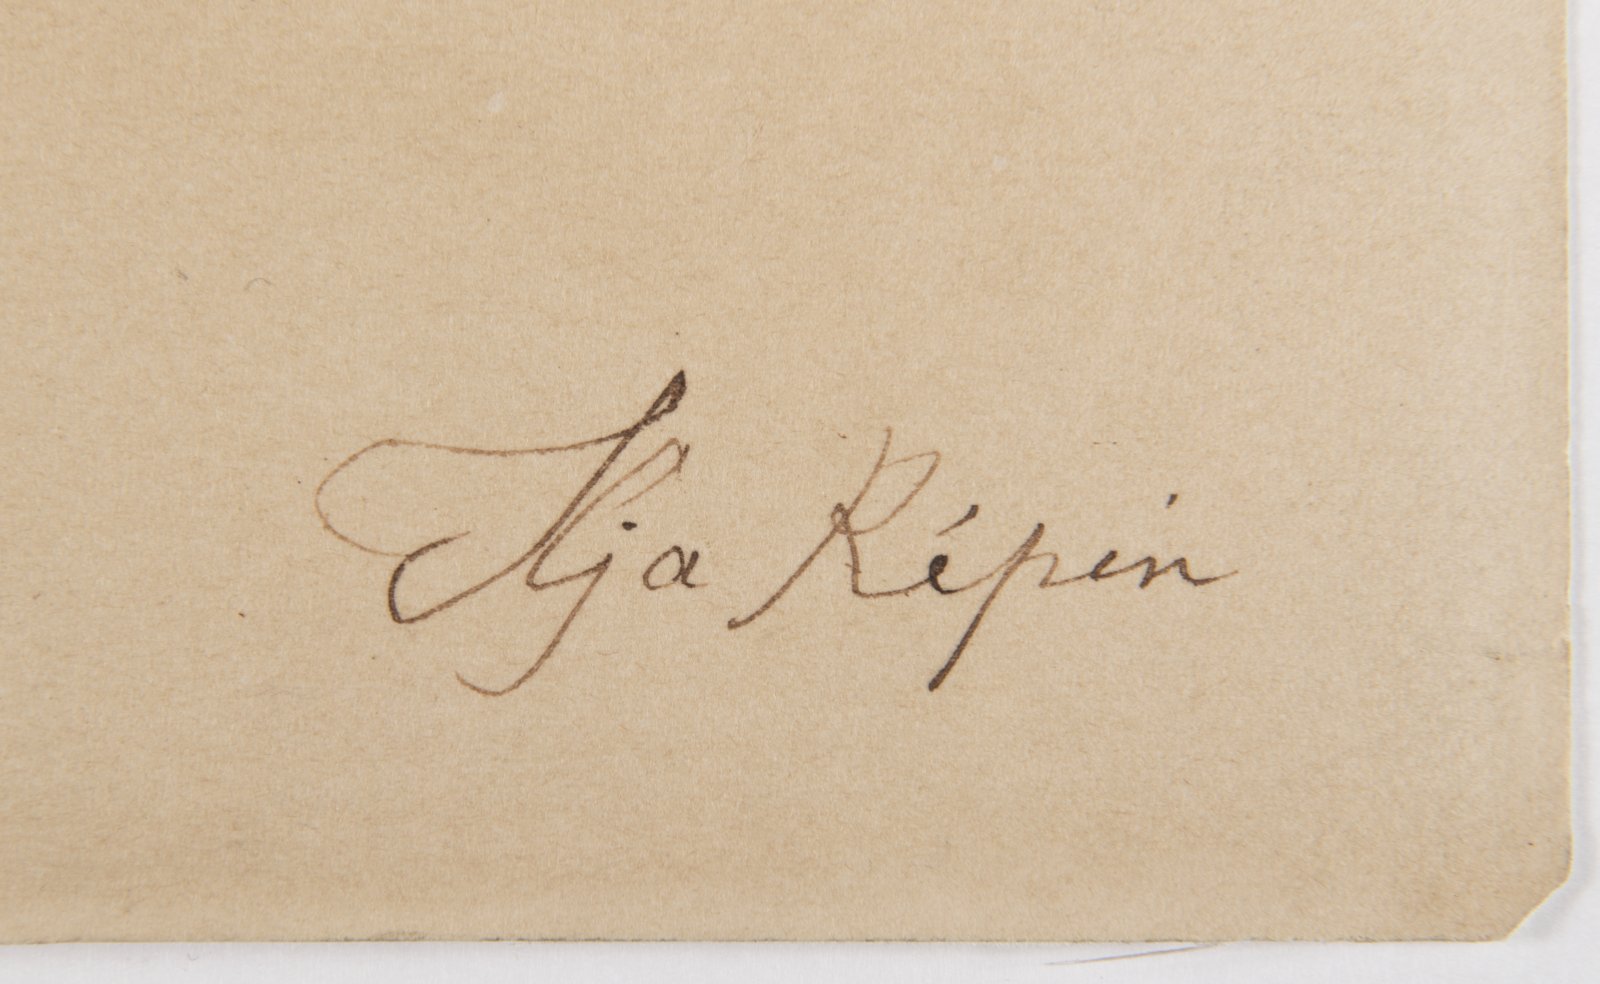 Ilja Répin